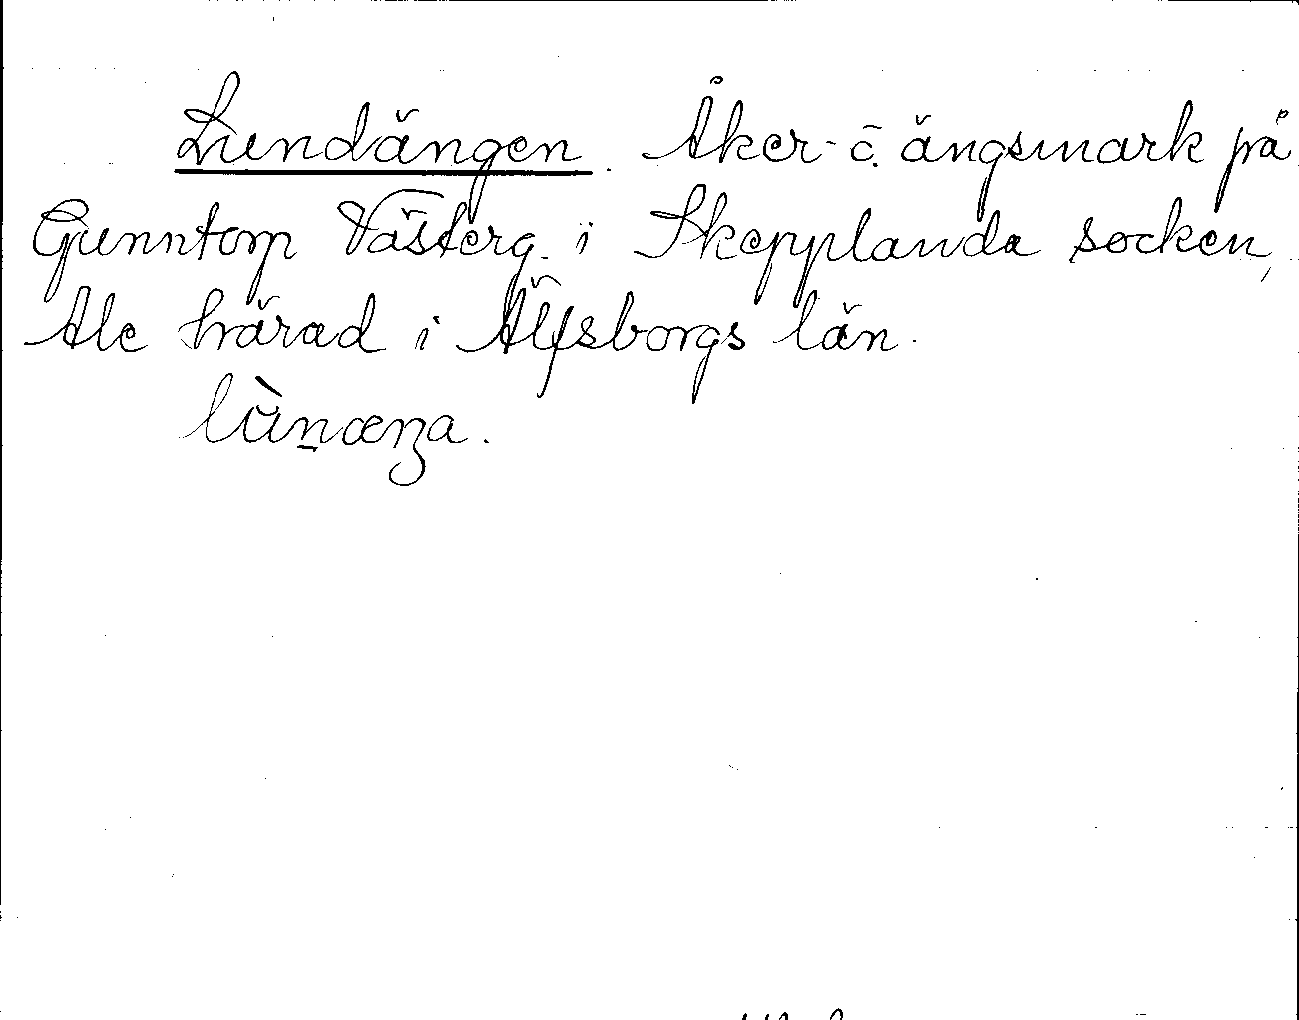 Lundängen. Åker- o. ängsmark på
Gunntorp Västerg. i Skepplanda socken,
Ale härad i Älfsborgs län.
lùn̠æŋa.